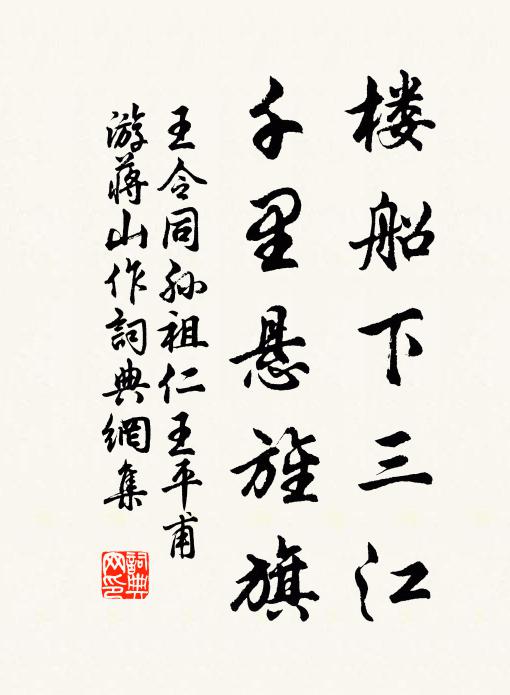 楼船下三江
千里悬旌旗
王令同孙祖仁王平甫
游蒋山作詞典網集
詞典
网印